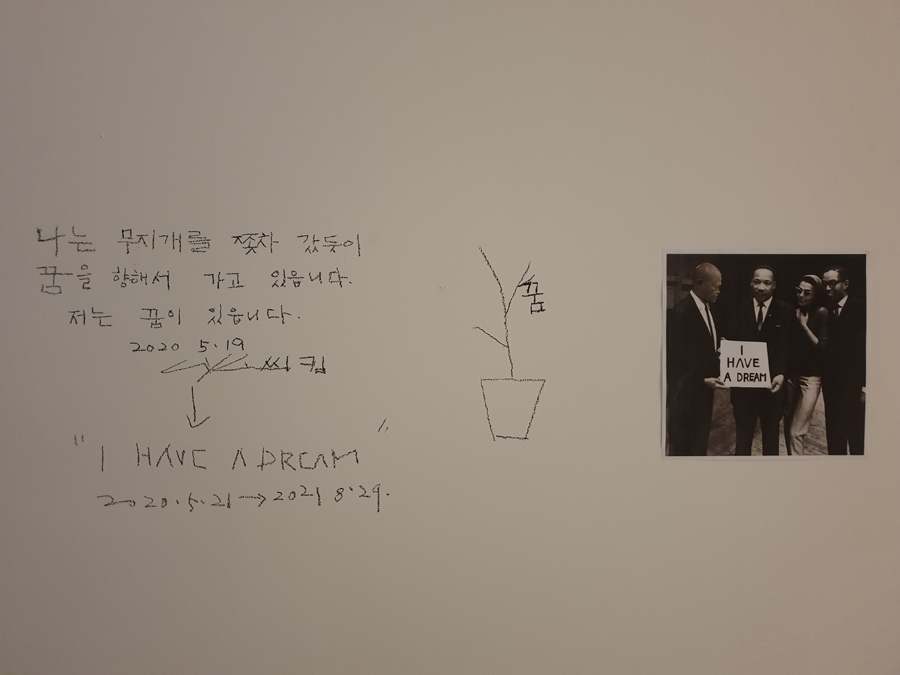 나는 무지개를 쫓차 갔듯이
꿈을 향해서 가고 있읍니다.
저는 꿈이 있읍니다.
2020 5.19
씨킴
"I HAVE A DREAM"
2020.5.21→2021 8.29.
꿈
I
HAVE
A DREAM